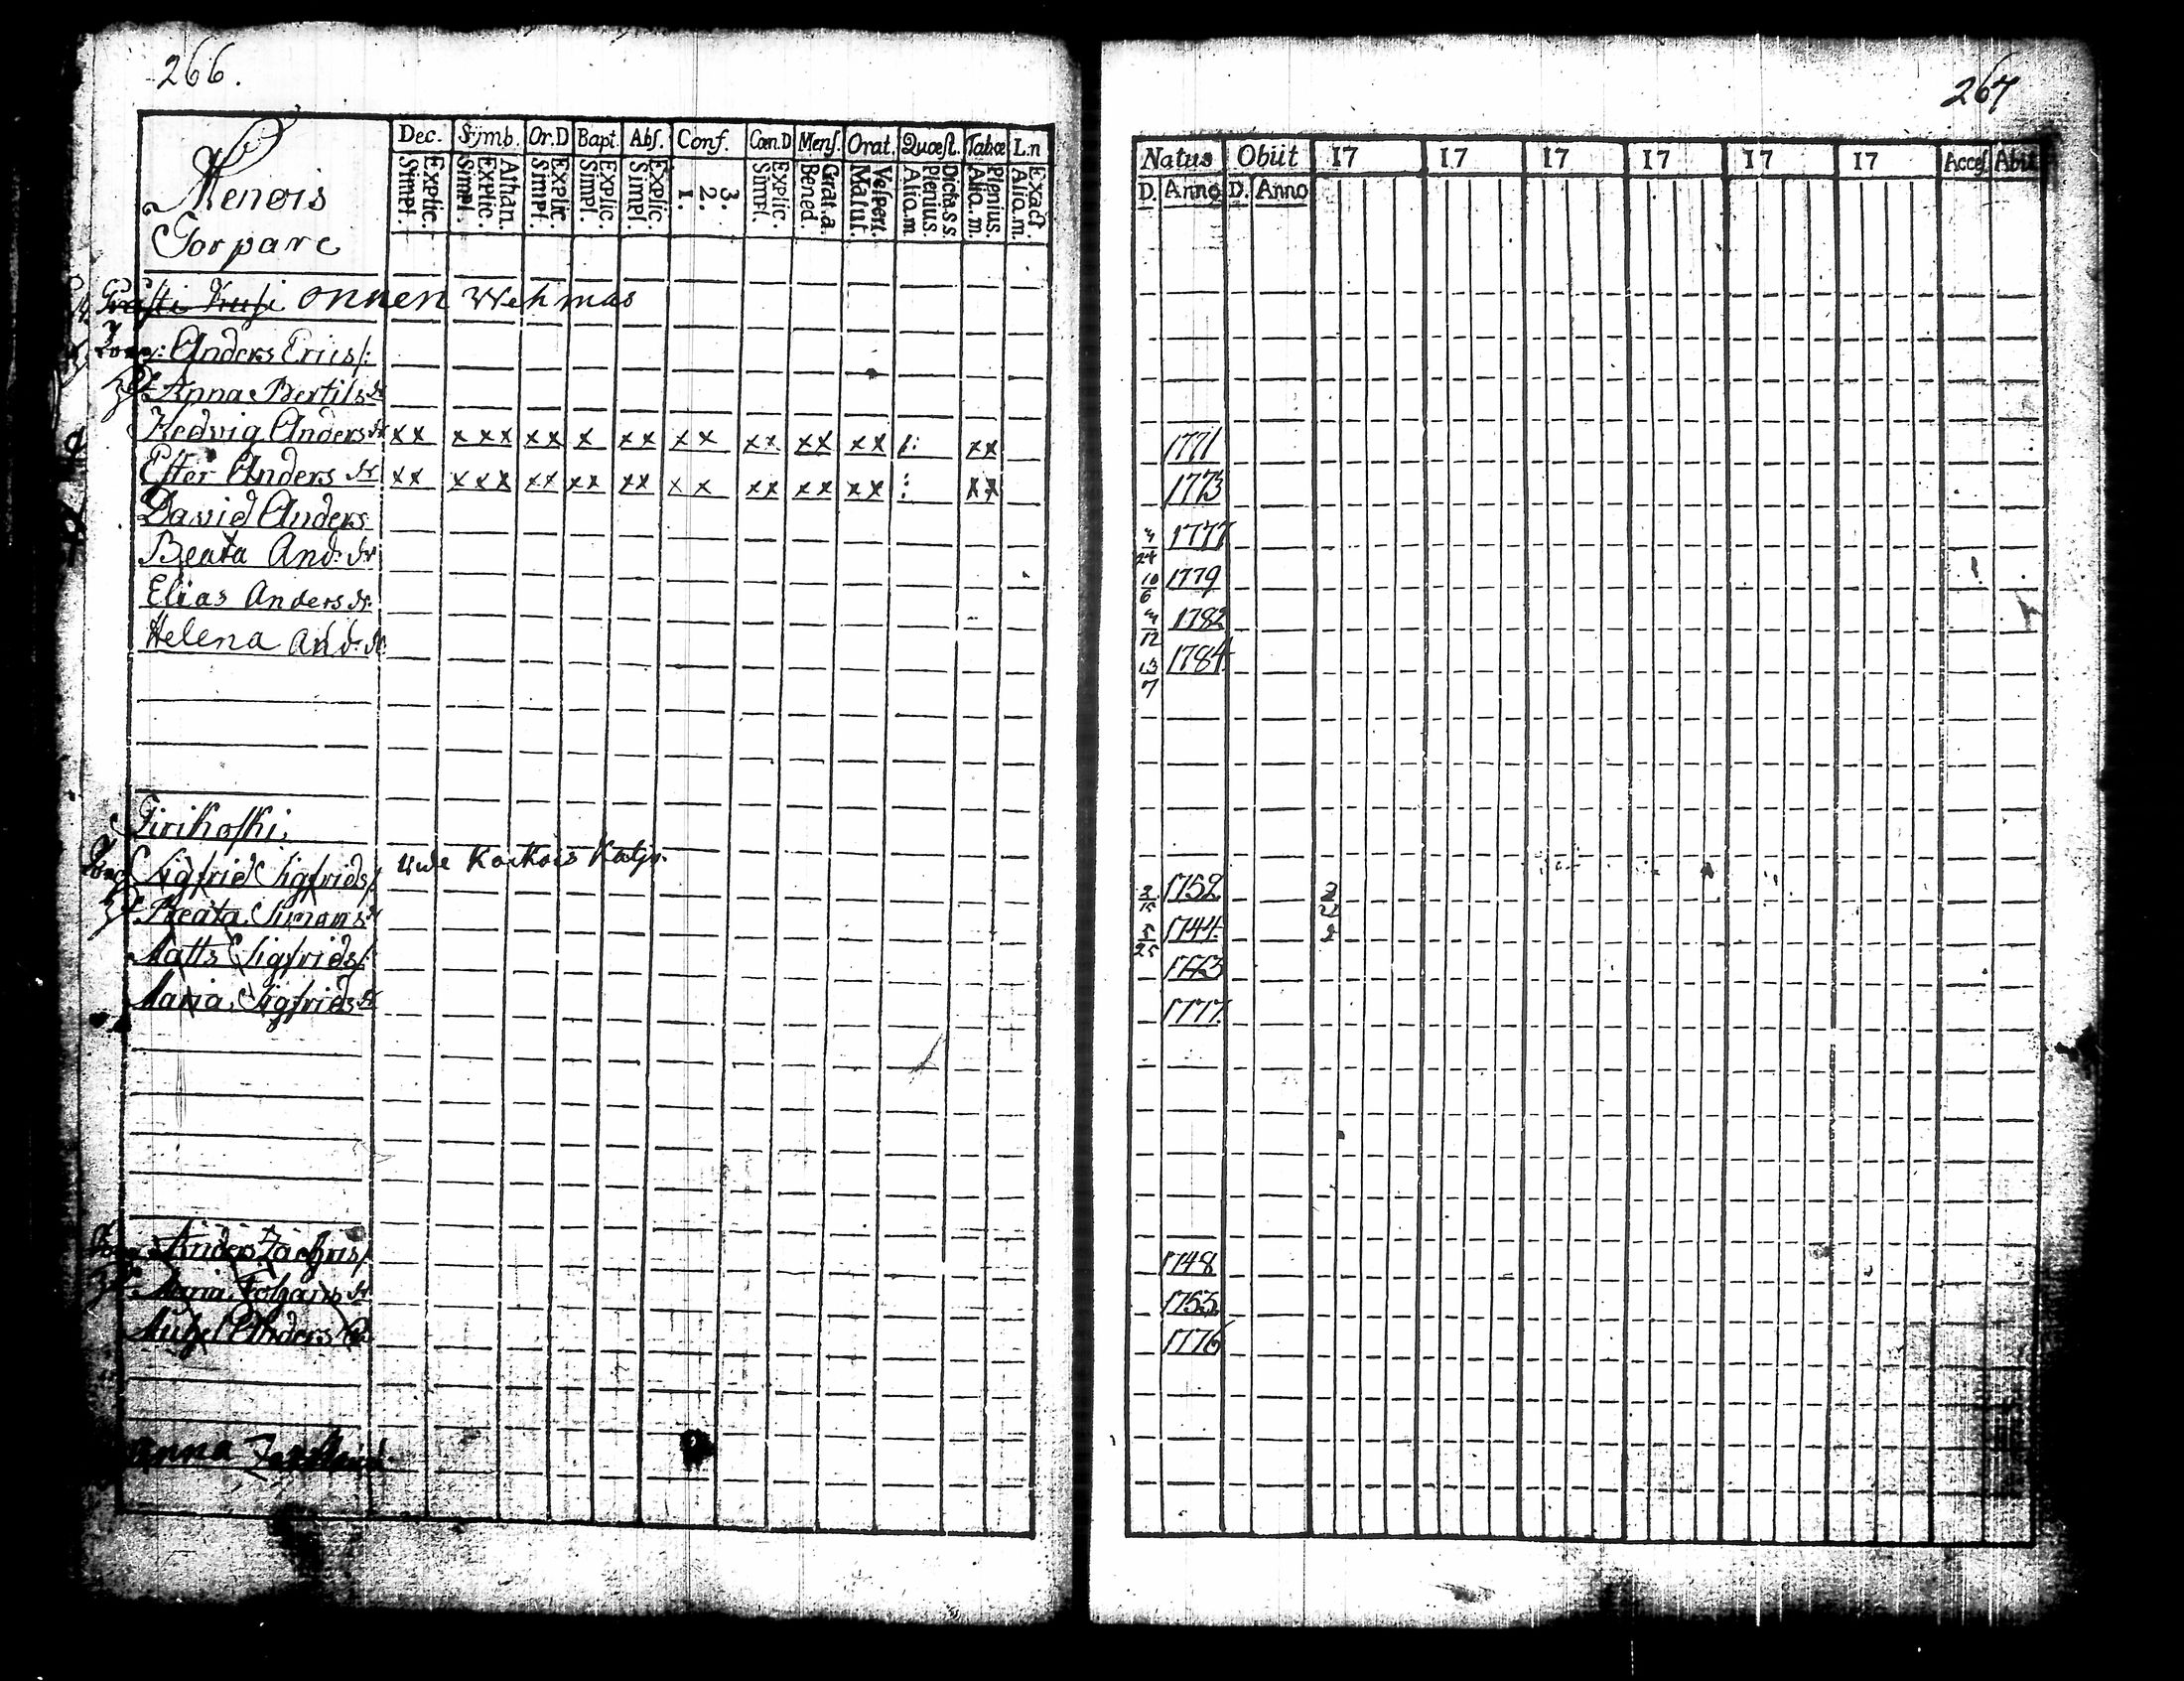 266.
267
Menois
Torpare
Dec. Symb. Or.D Bapt. Abs. Conf. Cœn.D Mens. Orat. Quæst. Tabœ L.n
Simpl. Explic. Simpl. Explic. Athan. Simpl. Explic. Simpl. Explic. Simpl. Explic. 1. 2. 3. Simpl. Explic. Bened. Grat.a. Matut. Vespert. Alio.m. Plenius. Dicta.s.s. Alio.m. Plenius. Alio.m. Exact.
Natus Obiit 17 17 17 17 17 17 Acces Abit
D. Anno D. Anno
onnen Wehmas
Anders Ericss:
Anna Bertils dr
Hedvig Anders dr xx xxx xx x xx xx xx xx xx xx 1771
Ester Anders dr xx xxx xx xx xx xx xx xx xx xx 1773
David Anders 4/24 1777
Beata And: dr 10/6 1779
Elias Anders 4/12 1782
Helena And: dr 13/7 1784
Tirikoski
Sigfrid Sigfridss 1752
Beata Simons dr 5/25 1744
Matts Sigfridss: 1773
Maria Sigfrids dr 1777
Anders Zachriss 1748
Maria Johans dr 1753
Anders 1776
Anna